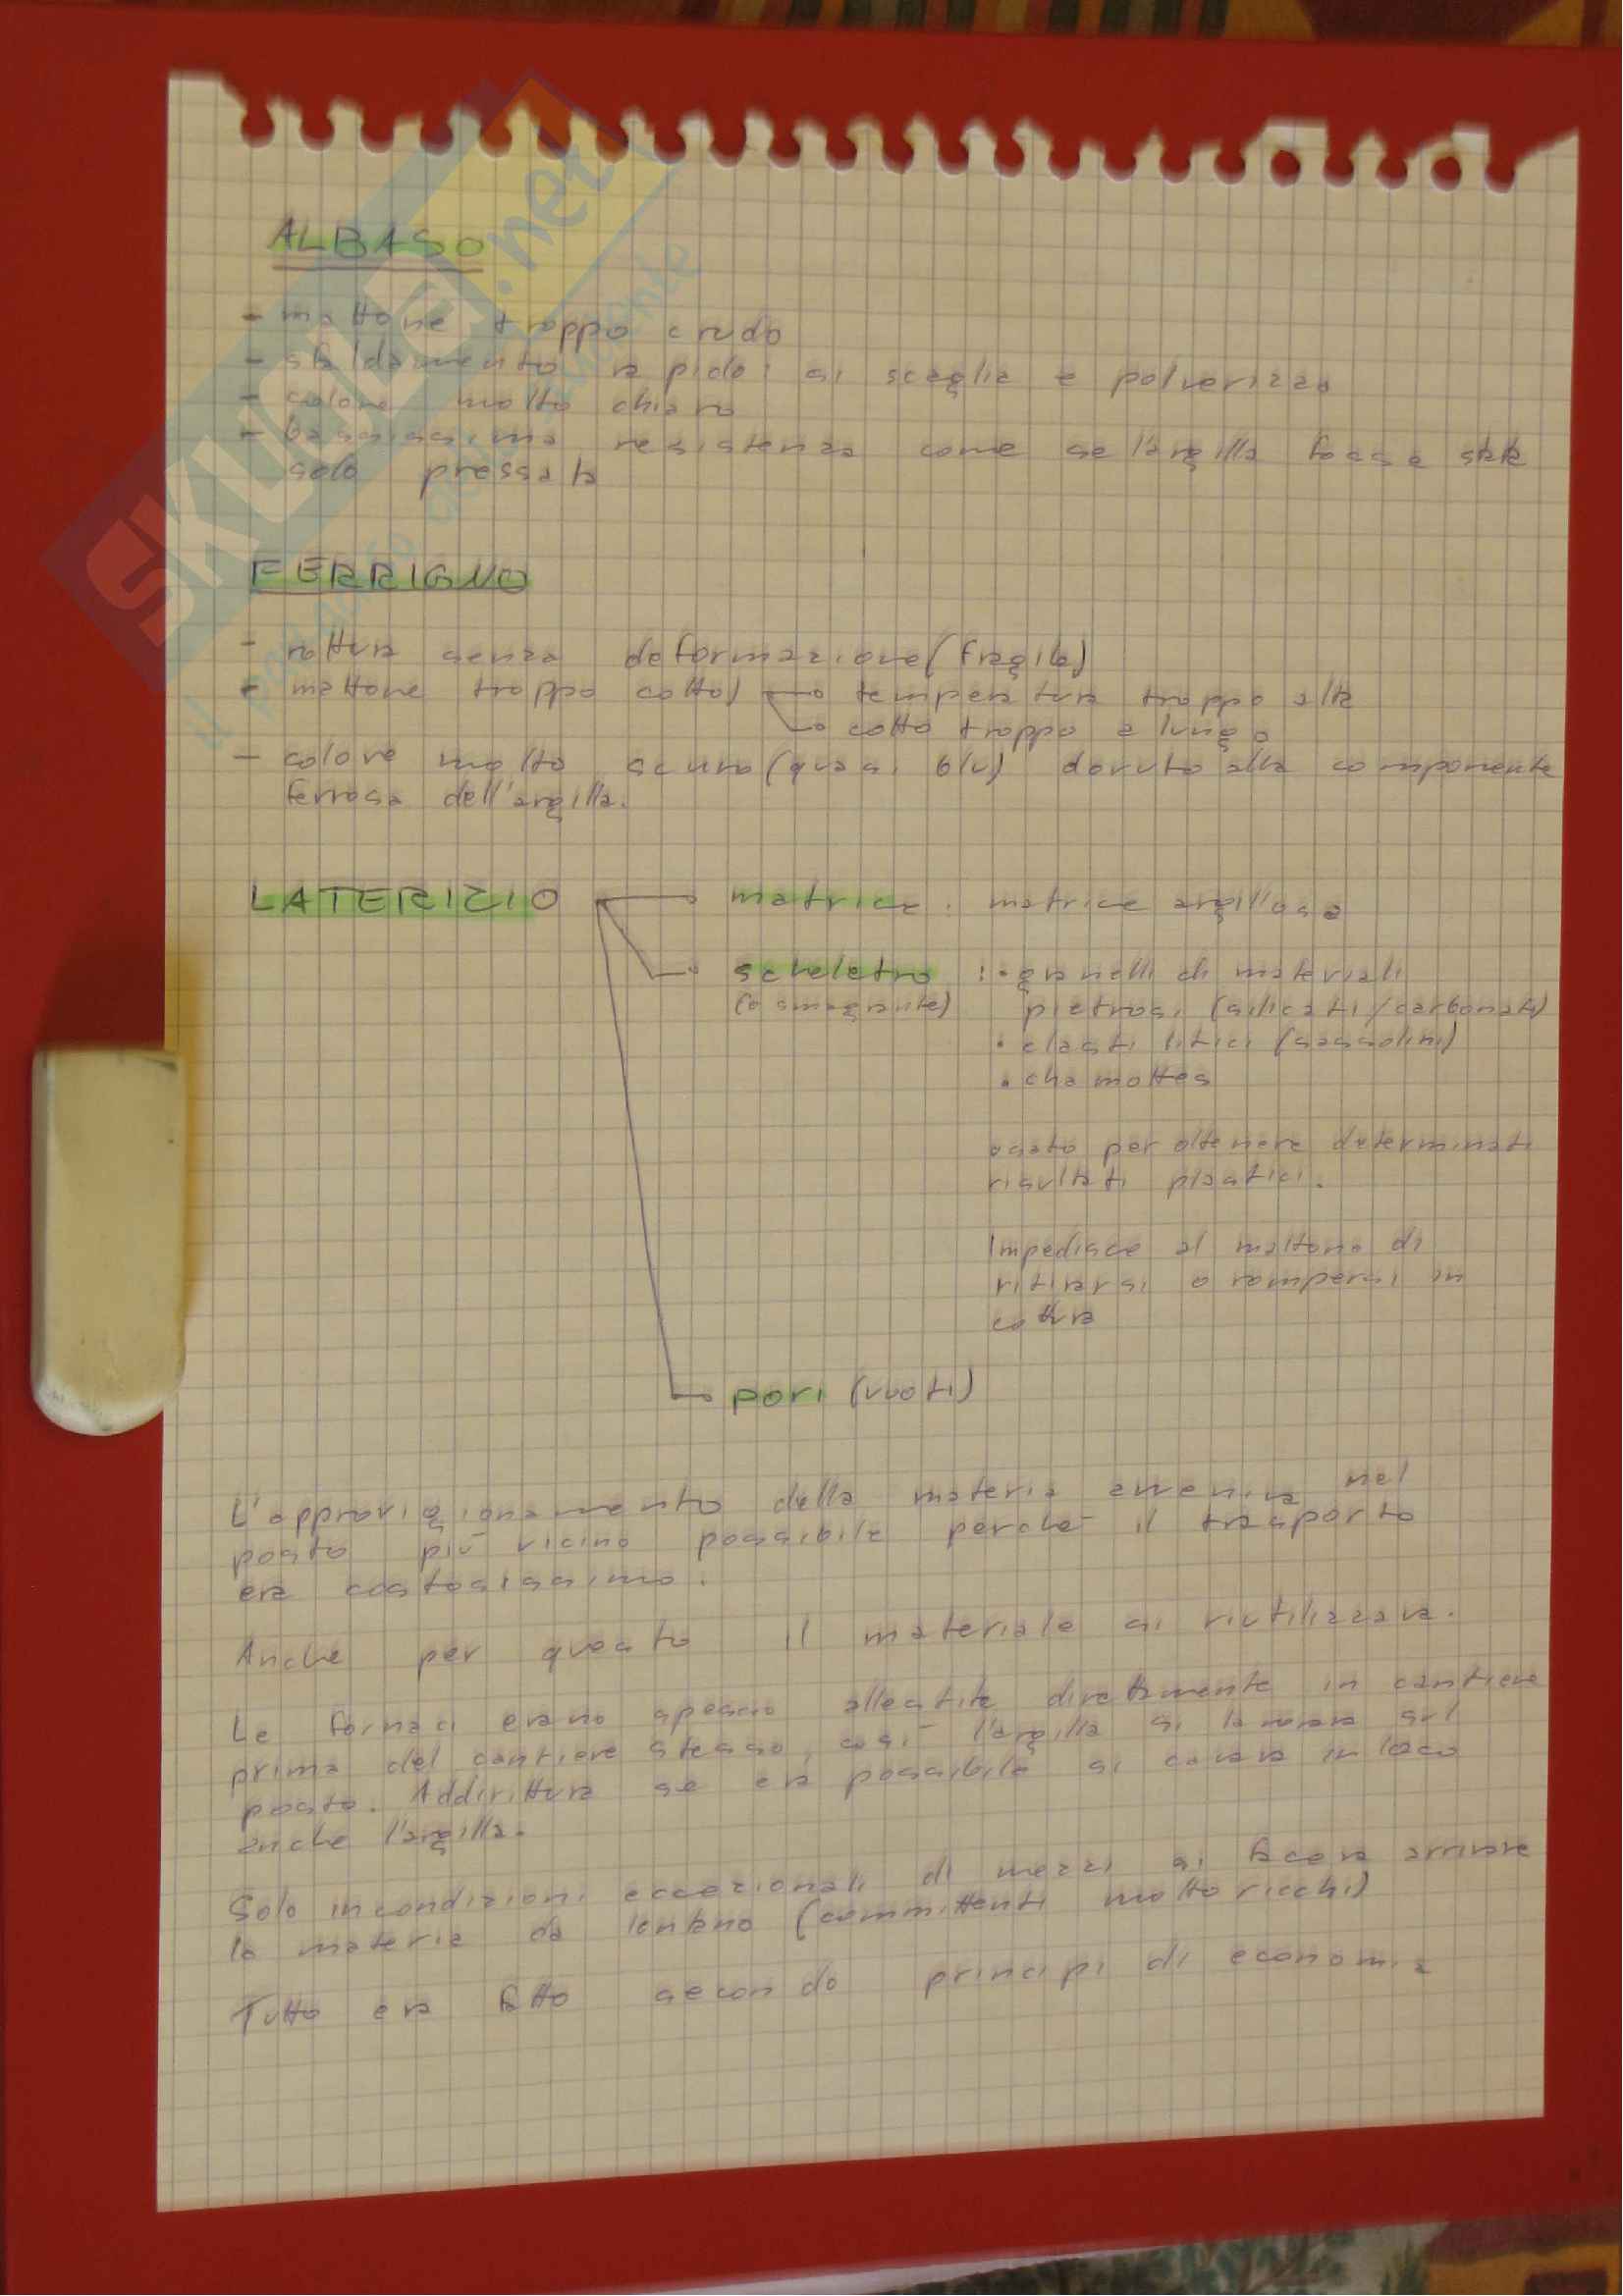 ALBASO
- mattone troppo crudo
- skldamento rapido: si scaglia e polverizza
- colore molto chiaro
- bassissima resistenza come se l'argilla fosse stata
solo pressata
FERRIGNO
- rottura senza deformazione (fragile)
- mattone troppo cotto) → temperatura troppo alta
→ cotto troppo a lungo
- colore molto scuro (quasi blu) dovuto alla componente
ferrosa dell'argilla.
LATERIZIO → matrice : matrice argillosa
→ scheletro : • granelli di materiali
(o smagrante) pietrosi (silicati/carbonati)
• clasti litici (sassolini)
• chamottes
usato per ottenere determinati
risultati plastici.
Impedisce al mattone di
ritirarsi o rompersi in
cottura
→ pori (vuoti)
L'approvigionamento della materia avveniva nel
posto più vicino possibile perché il trasporto
era costosissimo.
Anche per questo il materiale si riutilizzava.
Le fornaci erano spesso allestite direttamente in cantiere
prima del cantiere stesso, così l'argilla si lavorava sul
posto. Addirittura se era possibile si cavava in loco
anche l'argilla.
Solo in condizioni eccezionali di mezzi si faceva arrivare
la materia da lontano (committenti molto ricchi)
Tutto era fatto secondo principi di economia
SKUOLA.net
il paradiso dello studente